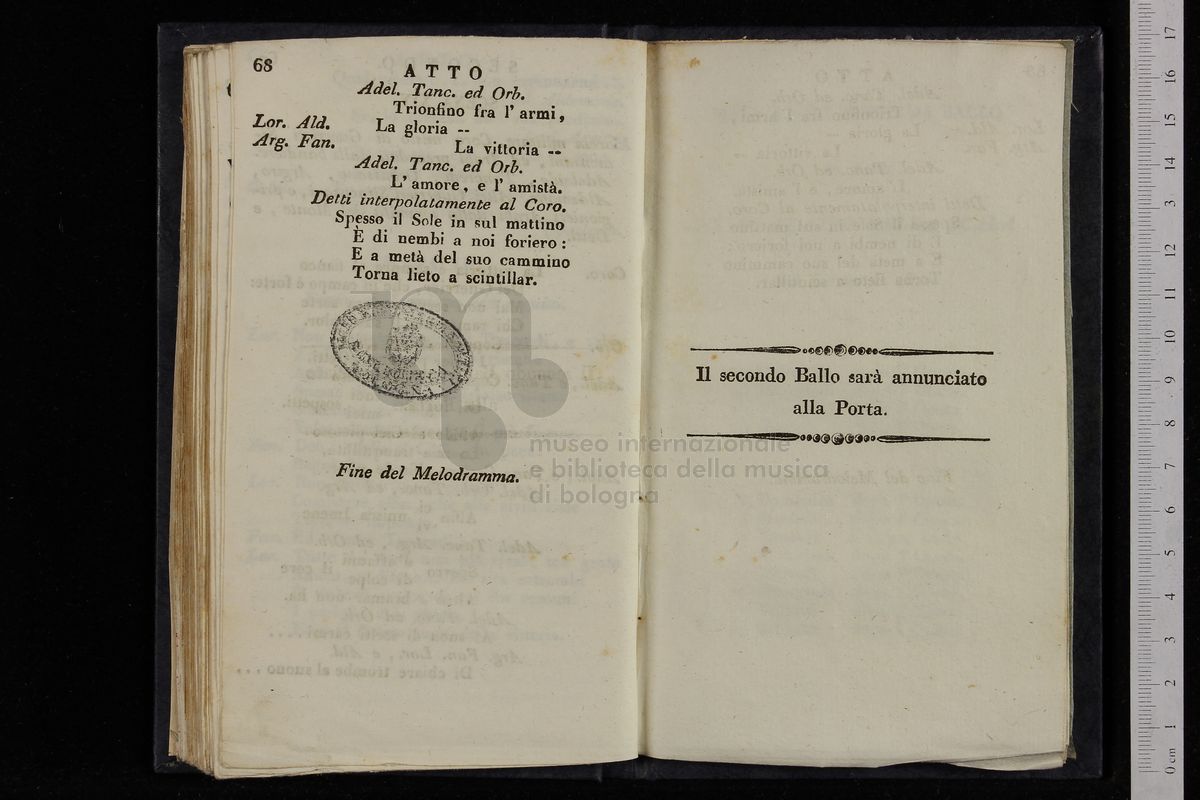 68
ATTO
Adel. Tanc. ed Orb.
Trionfino fra l' armi,
Lor. Ald. La gloria --
Arg. Fan. La vittoria --
Adel. Tanc. ed Orb.
L' amore, e l' amistà.
Detti interpolatamente al Coro.
Spesso il Sole in sul mattino
È di nembi a noi foriero:
E a metà del suo cammino
Torna lieto a scintillar.
Fine del Melodramma.
Il secondo Ballo sarà annunciato
alla Porta.
museo internazionale
e biblioteca della musica
di bologna
0 cm 1 2 3 4 5 6 7 8 9 10 11 12 13 14 15 16 17